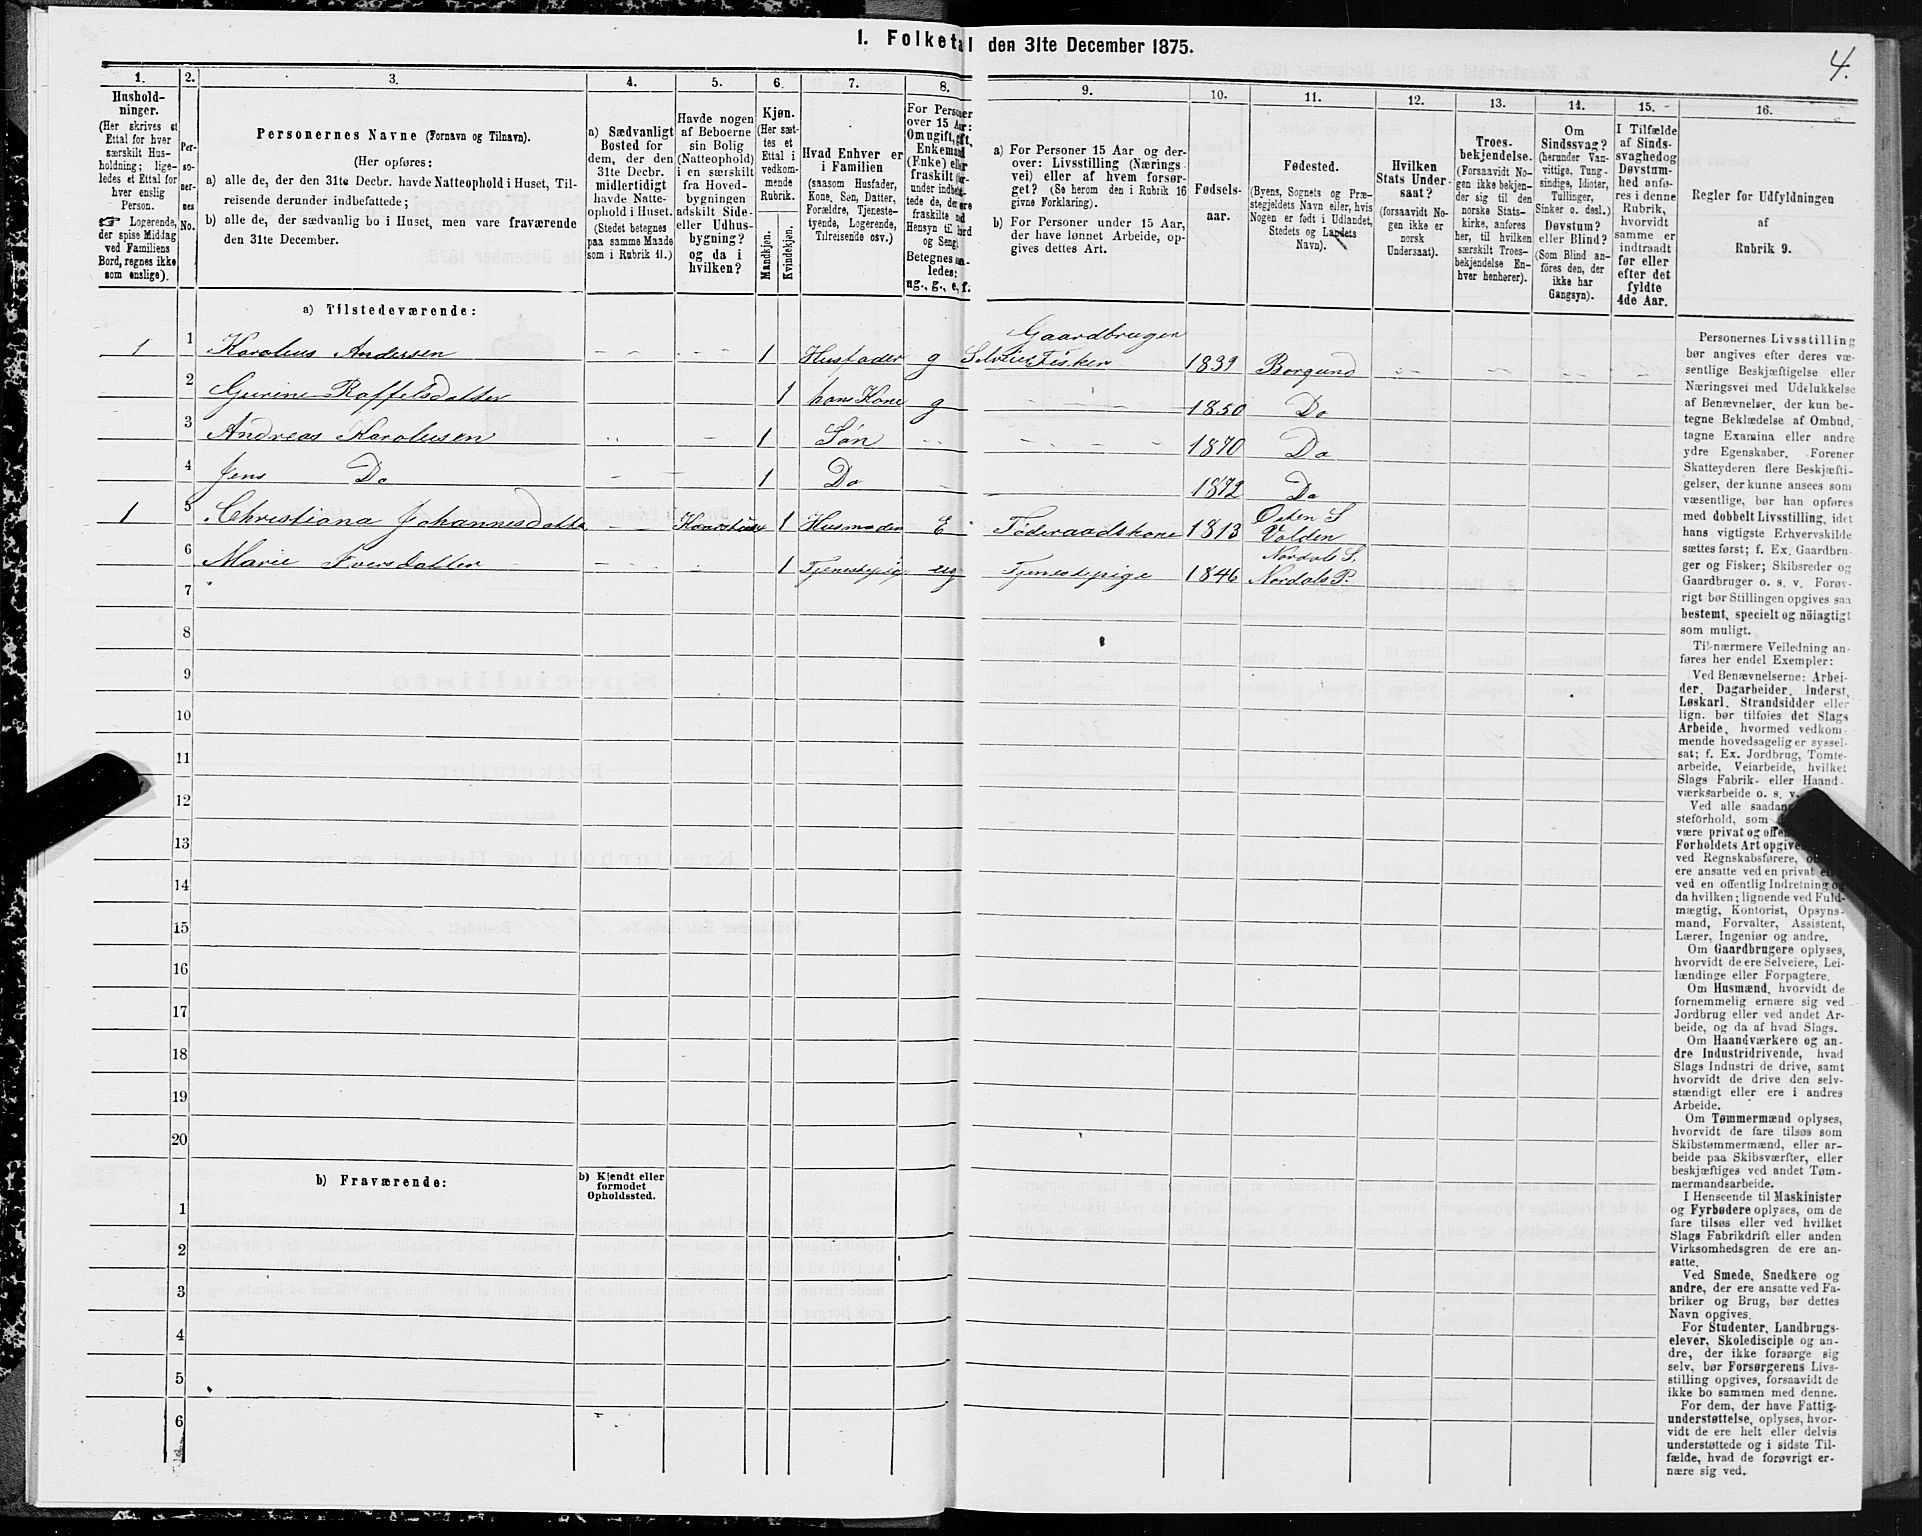 1. Folketal den 31te December 1875.
4.
1.
Husholdninger.
(Her skrives et
Ettal for hver
særskilt Husholdning;
ligeledes et Ettal for
hver enslig
Person.
☞ Logerende,
der spise Middag
ved Familiens
Bord, regnes ikke
som enslige).
2.
Personernes
No.
3.
Personernes Navne (Fornavn og Tilnavn).
(Her opføres:
a) alle de, der den 31te Decbr. havde Natteophold i Huset, Tilreisende derunder indbefattede;
b) alle de, der sædvanlig bo i Huset, men vare fraværende
den 31te December.
4.
a) Sædvanligt
Bosted for
dem, der den
31te Decbr.
midlertidigt
havde Natteophold
i Huset.
(Stedet betegnes
paa samme Maade
som i Rubrik 11.)
5.
Havde nogen
af Beboerne
sin Bolig
(Natteophold)
i en særskilt
fra Hovedbygningen
adskilt Side-
eller Udhusbygning?
og da i
hvilken?
6.
Kjøn.
(Her sættes et
Ettal i
vedkommende
Rubrik.
Mandkjøn.
Kvindekjøn.
7.
Hvad Enhver er
i Familien
(saasom Husfader,
Kone, Søn, Datter,
Forældre, Tjenestetyende,
Logerende,
Tilreisende osv.)
8.
For Personer
over 15 Aar:
Om ugift, gift,
Enkemand
(Enke) eller
fraskilt
Betegnes saaledes:
ug., g., e, f.
9.
a) For Personer 15 Aar og derover: Livsstilling (Næringsvei) eller af hvem forsørget? (Se herom den i Rubrik 16
givne Forklaring).
b) For Personer under 15 Aar,
der have lønnet Arbeide, opgives dettes Art.
10.
Fødselsaar.
11.
Fødested.
(Byens, Sognets og Præstegjeldets Navn eller, hvis
Nogen er født i Udlandet,
Stedets og Landets
Navn).
12.
Hvilken
Stats Undersaat?
(forsaavidt Nogen ikke er
norsk
Undersaat).
13.
Troesbekjendelse.
(Forsaavidt Nogen ikke bekjender sig til den
norske Statskirke, anføres
her, til hvilken
særskilt Troesbekjendelse Enhver henhører).
14.
Om
Sindssvag?
(herunder Vanvittige, Tungsindige, Idioter,
Tullinger,
Sinker o. desl.)
Døvstum?
eller Blind?
(Som Blind anføres den, der
ikke har
Gangsyn).
15.
I Tilfælde
af Sindssvaghed og
Døvstumhed anføres i denne
Rubrik,
hvorvidt
samme er
indtraadt
før eller
efter det
fyldte
4de Aar.
16.
Regler for Udfyldningen
af
Rubrik 9.
a) Tilstedeværende:
1 1 Karolius Andersen 1 Husfader g Gaardbruger Selveier Fisker 1839 Borgund
2 Gurine Raffelsdatter 1 hans Kone g 1850 Do
3 Andreas Karolusen 1 Søn 1870 Do
4 Jens Do 1 Do 1872 Do
1 5 Christiana Johannesdatter 1 Husmoder E Føderaadskone 1813 Østen S Volden
6 Marie Iversdatter 1 Tjenestepige ug Tjenestepige 1846 Nordals S. Nordals P.
7
8
9
10
11
12
13
14
15
16
17
18
19
20
b) Fraværende:
b) Kjendt eller
formodet
Opholdssted.
1
2
3
4
5
6
Personernes Livsstilling
bør angives efter deres væsentlige Beskjæftigelse eller
Næringsvei med Udelukkelse
af Benævnelser, der kun betegne Beklædelse af Ombud,
tagne Examina eller andre
ydre Egenskaber. Forener
Skatteyderen flere Beskjæftigelser, der kunne ansees som
væsentlige, bør han opføres
med dobbelt Livsstilling, idet
hans vigtigste Erhvervskilde
sættes først; f. Ex. Gaardbruger og Fisker; Skibsreder og
Gaardbruger o. s. v. Forøvrigt bør Stillingen opgives saa
bestemt, specielt og nöiagtigt
som muligt.
Til nærmere Veiledning anføres her endel Exempler:
Ved Benævnelserne: Arbeider, Dagarbeider, Inderst,
Løskarl, Strandsidder eller
lign. bør tilføies det Slags
Arbeide, hvormed vedkommende hovedsagelig er sysselsat; f. Ex. Jordbrug, Tomtearbeide, Veiarbeide, hvilket
Slags Fabrik- eller Haandværksarbeide o. s. v.
Om Gaardbrugere oplyses,
hvorvidt de ere Selveiere, Leilændinge eller Forpagtere.
Om Husmænd, hvorvidt de
fornemmelig ernære sig ved
Jordbrug eller ved andet Arbeide, og da af hvad Slags.
Om Haandværkere og andre Industridrivende, hvad
Slags Industri de drive, samt
hvorvidt de drive den selvstændigt eller ere i andres
Arbeide.
Om Tømmermænd oplyses,
hvorvidt de fare tilsøs som
Skibstømmermænd, eller arbeide paa Skibsværfter, eller
beskjæftiges ved andet Tømmermandsarbeide.
I Henseende til Maskinister
og Fyrbødere oplyses, om de
fare tilsøs eller ved hvilket
Slags Fabrikdrift eller anden
Virksomhedsgren de ere ansatte.
Ved Smede, Snedkere og
andre, der ere ansatte ved Fabriker og Brug, bør dettes
Navn opgives.
For Studenter, Landbrugselever, Skoledisciple og andre, der ikke forsørge sig
selv, bør Forsørgerens Livsstilling opgives, forsaavidt de
ikke bo sammen med denne.
For dem, der have Fattigunderstøttelse, oplyses, hvorvidt de ere helt eller delvis
understøttede og i sidste Tilfælde, hvad de forøvrigt ernære sig ved.